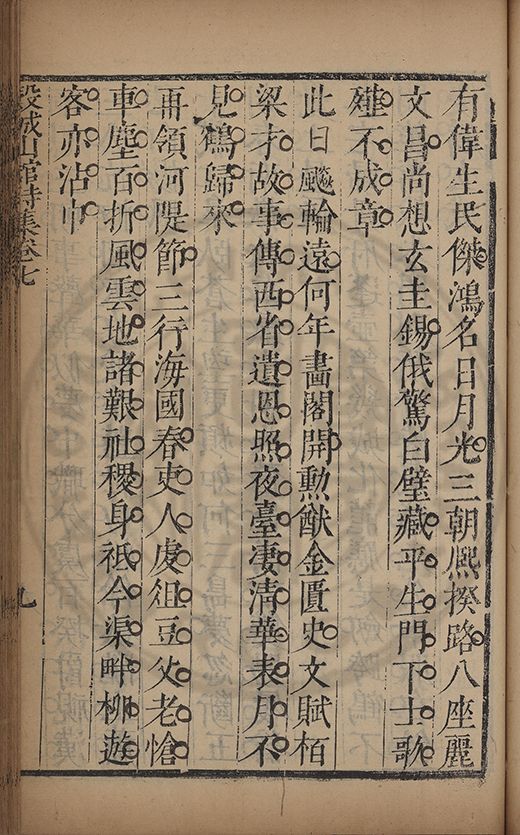 有偉生民傑鴻名日月光三朝熙揆路八座麗
文昌尚想玄圭錫俄驚白璧藏平生門下士歌
薤不成章
此日飈輪遠何年畫閣開勲猷金匱史文賦栢
梁才故事傳西省遺恩照夜臺凄清華表月不
見鶴歸來
再領河隄節三行海國春吏人虔俎豆父老愴
車塵百折風雲地諸艱社稷身祗今渠畔柳遊
客亦沾巾
穀城山館詩集卷七
九